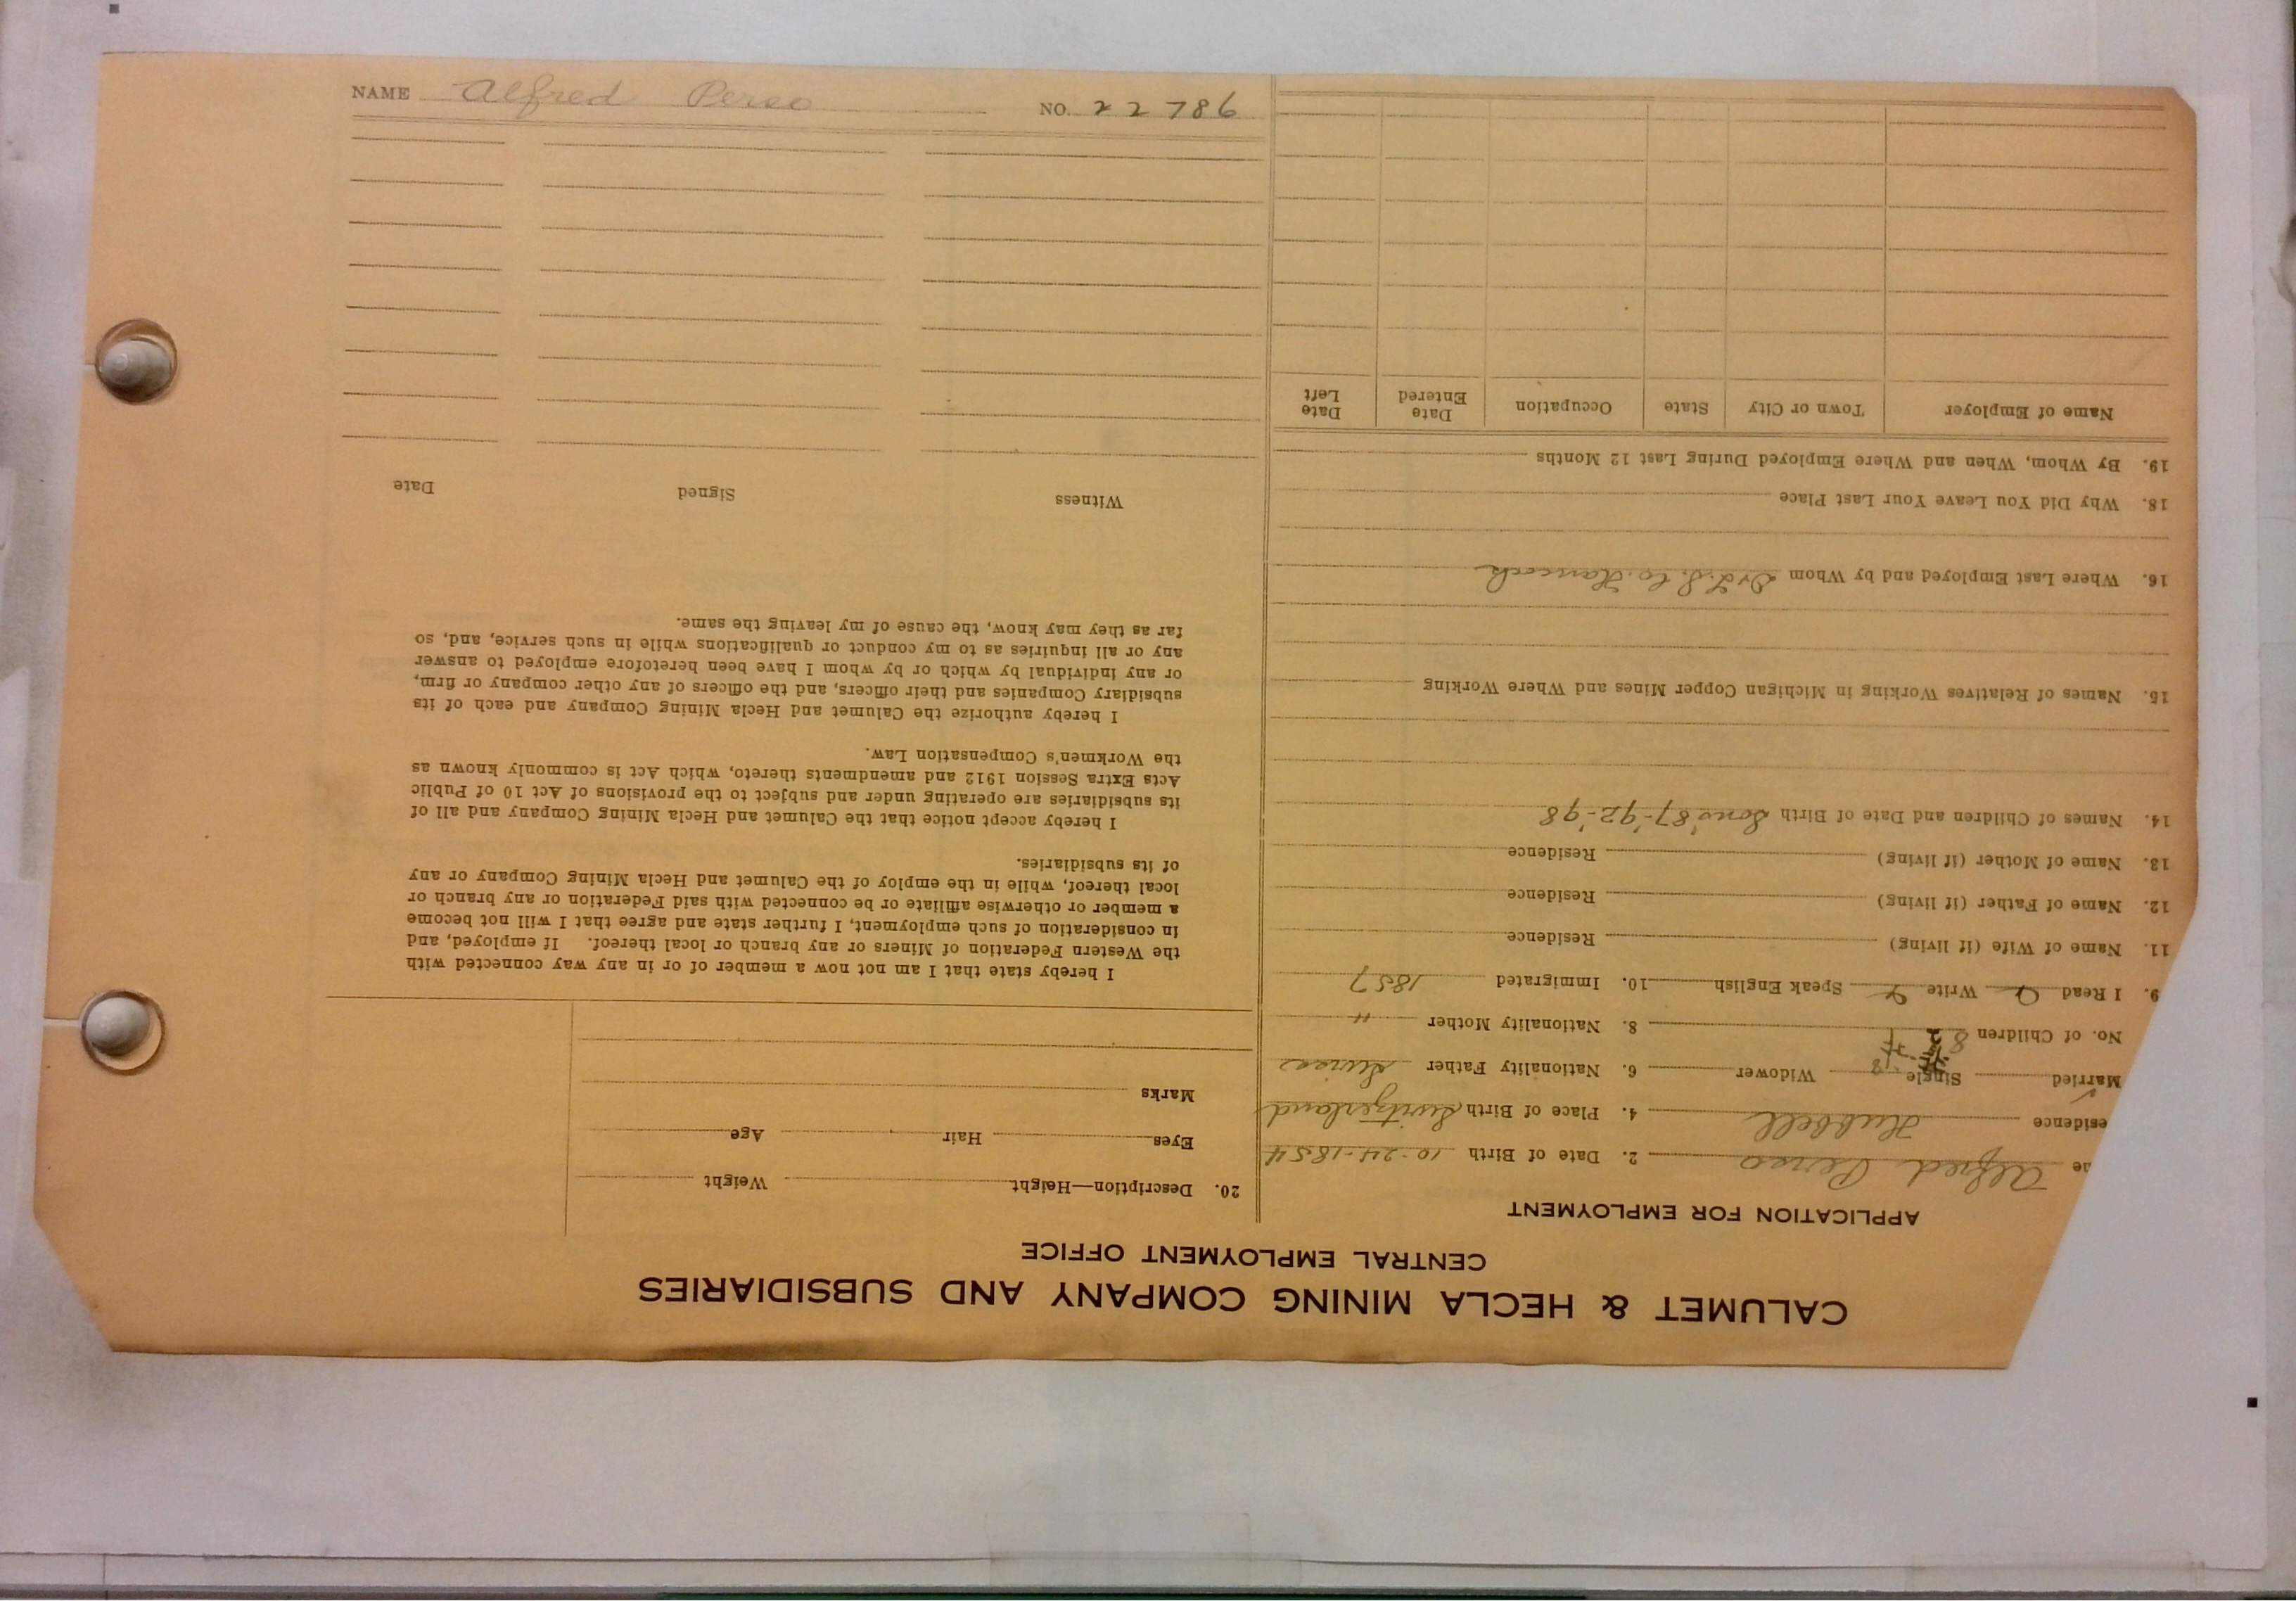 NAME Alfred Perso NO. 22786
CALUMET & HECLA MINING COMPANY AND SUBSIDIARIES
CENTRAL EMPLOYMENT OFFICE
APPLICATION FOR EMPLOYMENT
Alfred Perso 2. Date of Birth 10-24-1854
esidence Hubbell 4. Place of Birth Switzerland
Married Single Widower 6. Nationality Father Swiss
No. of Children 8 8. Nationality Mother "
9. I Read Write Speak English 10. Immigrated 1857
11. Name of Wife (if living) Residence
12. Name of Father (if living) Residence
13. Name of Mother (if living) Residence
14. Names of Children and Date of Birth Sons '87-'92-'98
15. Names of Relatives Working in Michigan Copper Mines and Where Working
16. Where Last Employed and by Whom Co. Hancock
18. Why Did You Leave Your Last Place
19. By Whom, When and Where Employed During Last 12 Months
Name of Employer Town or City State Occupation Date Entered Date Left
20. Description—Height Weight
Eyes Hair Age
Marks
I hereby state that I am not now a member of or in any way connected with
the Western Federation of Miners or any branch or local thereof. If employed, and
in consideration of such employment, I further state and agree that I will not become
a member or otherwise affiliate or be connected with said Federation or any branch or
local thereof, while in the employ of the Calumet and Hecla Mining Company or any
of its subsidiaries.
I hereby accept notice that the Calumet and Hecla Mining Company and all of
its subsidiaries are operating under and subject to the provisions of Act 10 of Public
Acts Extra Session 1912 and amendments thereto, which Act is commonly known as
the Workmen's Compensation Law.
I hereby authorize the Calumet and Hecla Mining Company and each of its
subsidiary Companies and their officers, and the officers of any other company or firm,
or any individual by which or by whom I have been heretofore employed to answer
any or all inquiries as to my conduct or qualifications while in such service, and, so
far as they may know, the cause of my leaving the same.
Witness Signed Date